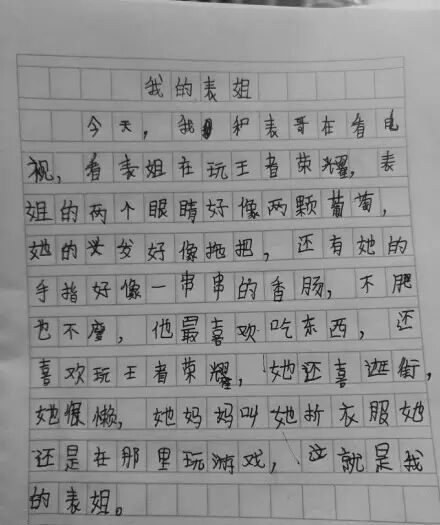 我的表姐
今天，我和表哥在看电
视，看表姐在玩王者荣耀，表
姐的两个眼睛好像两颗葡萄，
她的头发好像拖把，还有她的
手指好像一串串的香肠，不肥
也不瘦，他最喜欢吃东西，还
喜欢玩王者荣耀，她还喜逛街，
她很懒，她妈妈叫她折衣服她
还是在那里玩游戏，这就是我
的表姐。